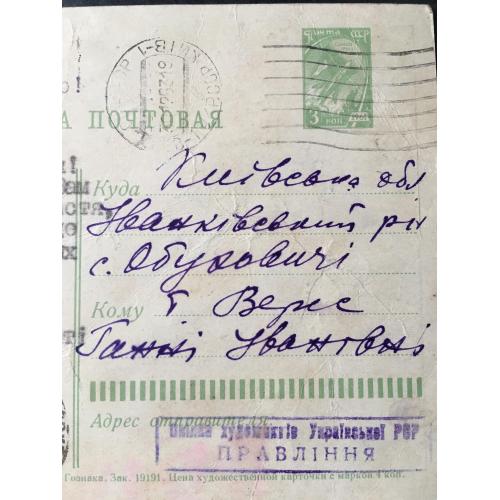 ПОЧТА СССР
3
КОП
А ПОЧТОВАЯ
Куда Київська обл
Іванківський рн
с. Обуховичі
Кому т Верес
Ганні Іванівні
Адрес отправителя:
Спілка художників Української РСР
ПРАВЛІННЯ
Гознака. Зак. 19191. Цена художественной карточки с маркой 4 коп.